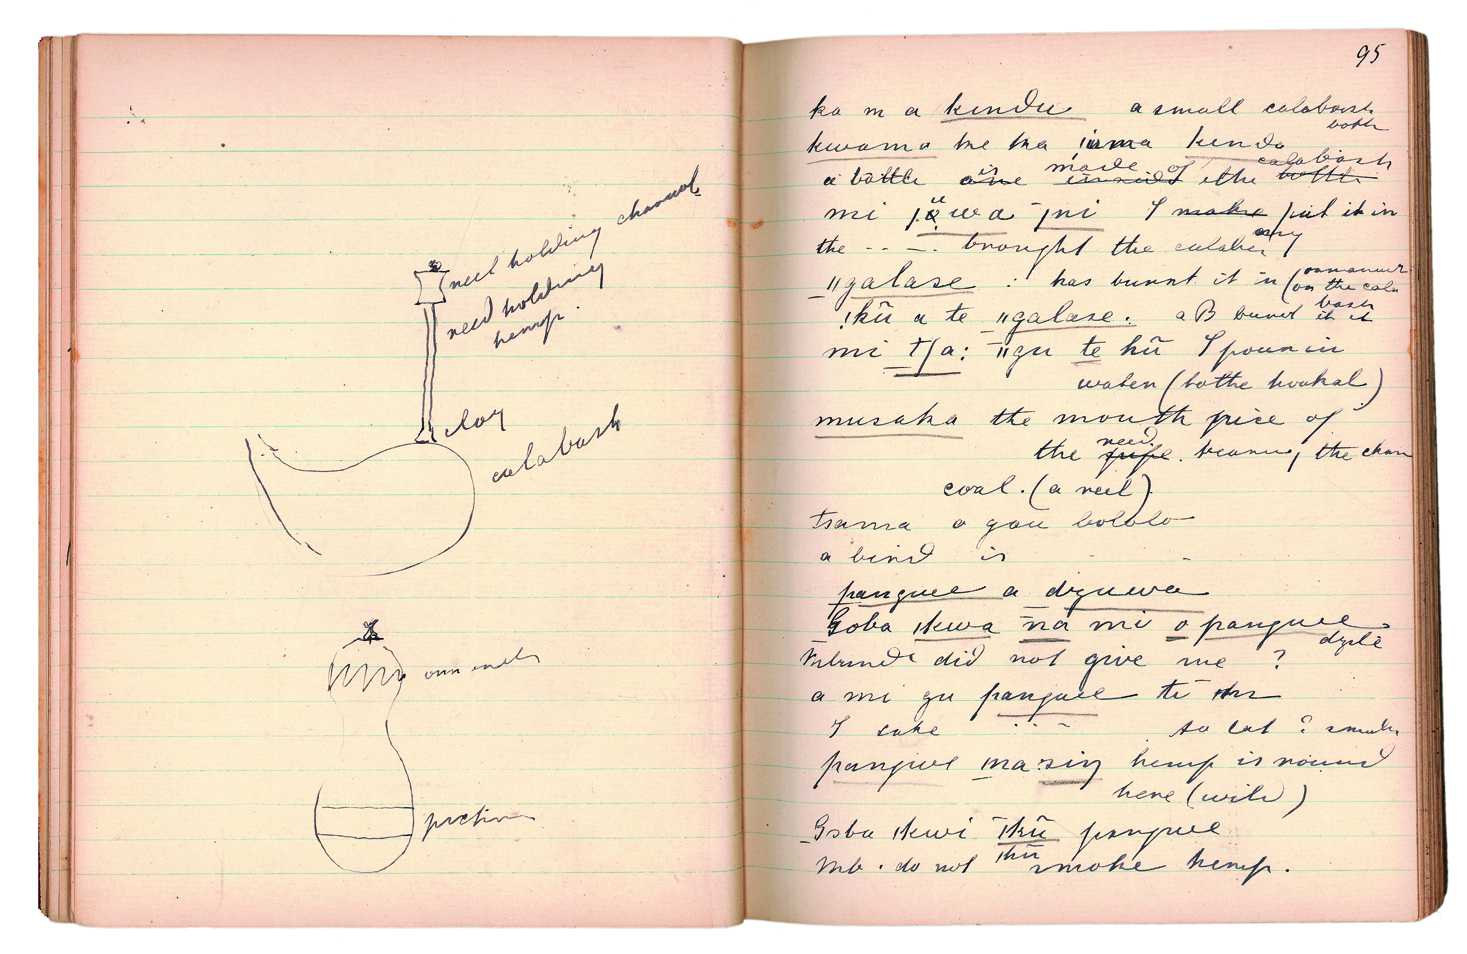 reed holding charcoal
reed holding
hemp.
clay
calabash
ornaments
picture
95
ka m a kundu a small calabash
bottle
kwama ke ka ǃuma kunda
a bottle is made of the calabash
mi I make put it in
the - - - . brought the calabash
ǁgalase : has burnt it in (
on the cala
bash
ǃkū a te ǁgalase. a B burnt it
mi : ǁgu te kū I pour in
water (to the hookah)
musaka the mouth piece of
the reed pipe bearing the char
coal. (a reed)
tsama o gau bololo
a bird is - -
pangwe a dzuwa
Goba ǀkwa na mi o pangwe
did not give me ?
a mi gu pangwe tī
I take - - - to eat ? smoke
pangwe ma sin hemp is round
here (wild)
Goba ǀkwi ǀkū pangwe
ǀkū
Mb. do not smoke hemp.